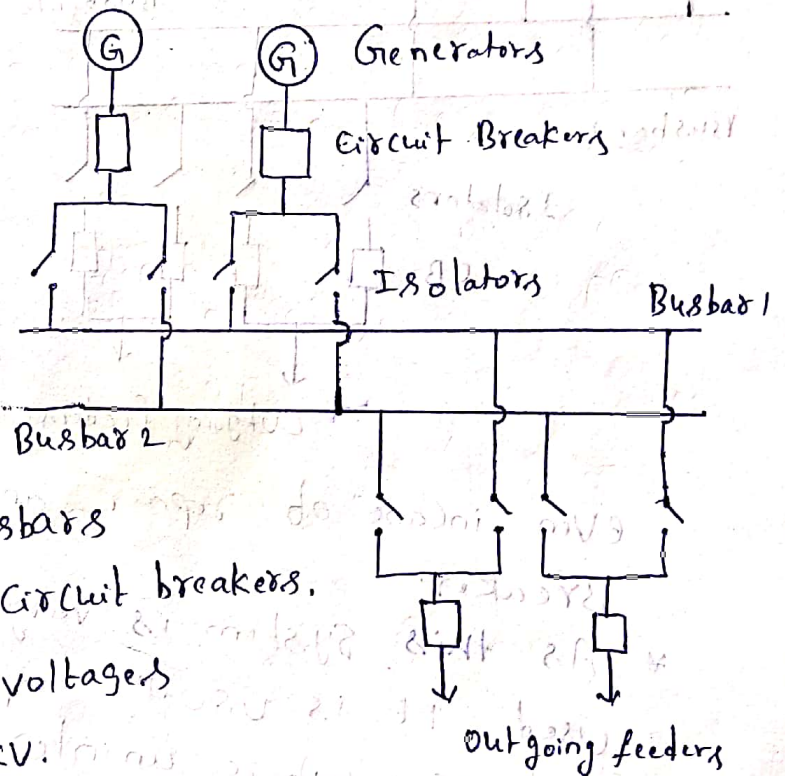 G
G
Generators
Circuit Breakers
Isolators
Busbar 1
Busbar 2
sbars
Circuit breakers.
voltages
V.
Outgoing feeders